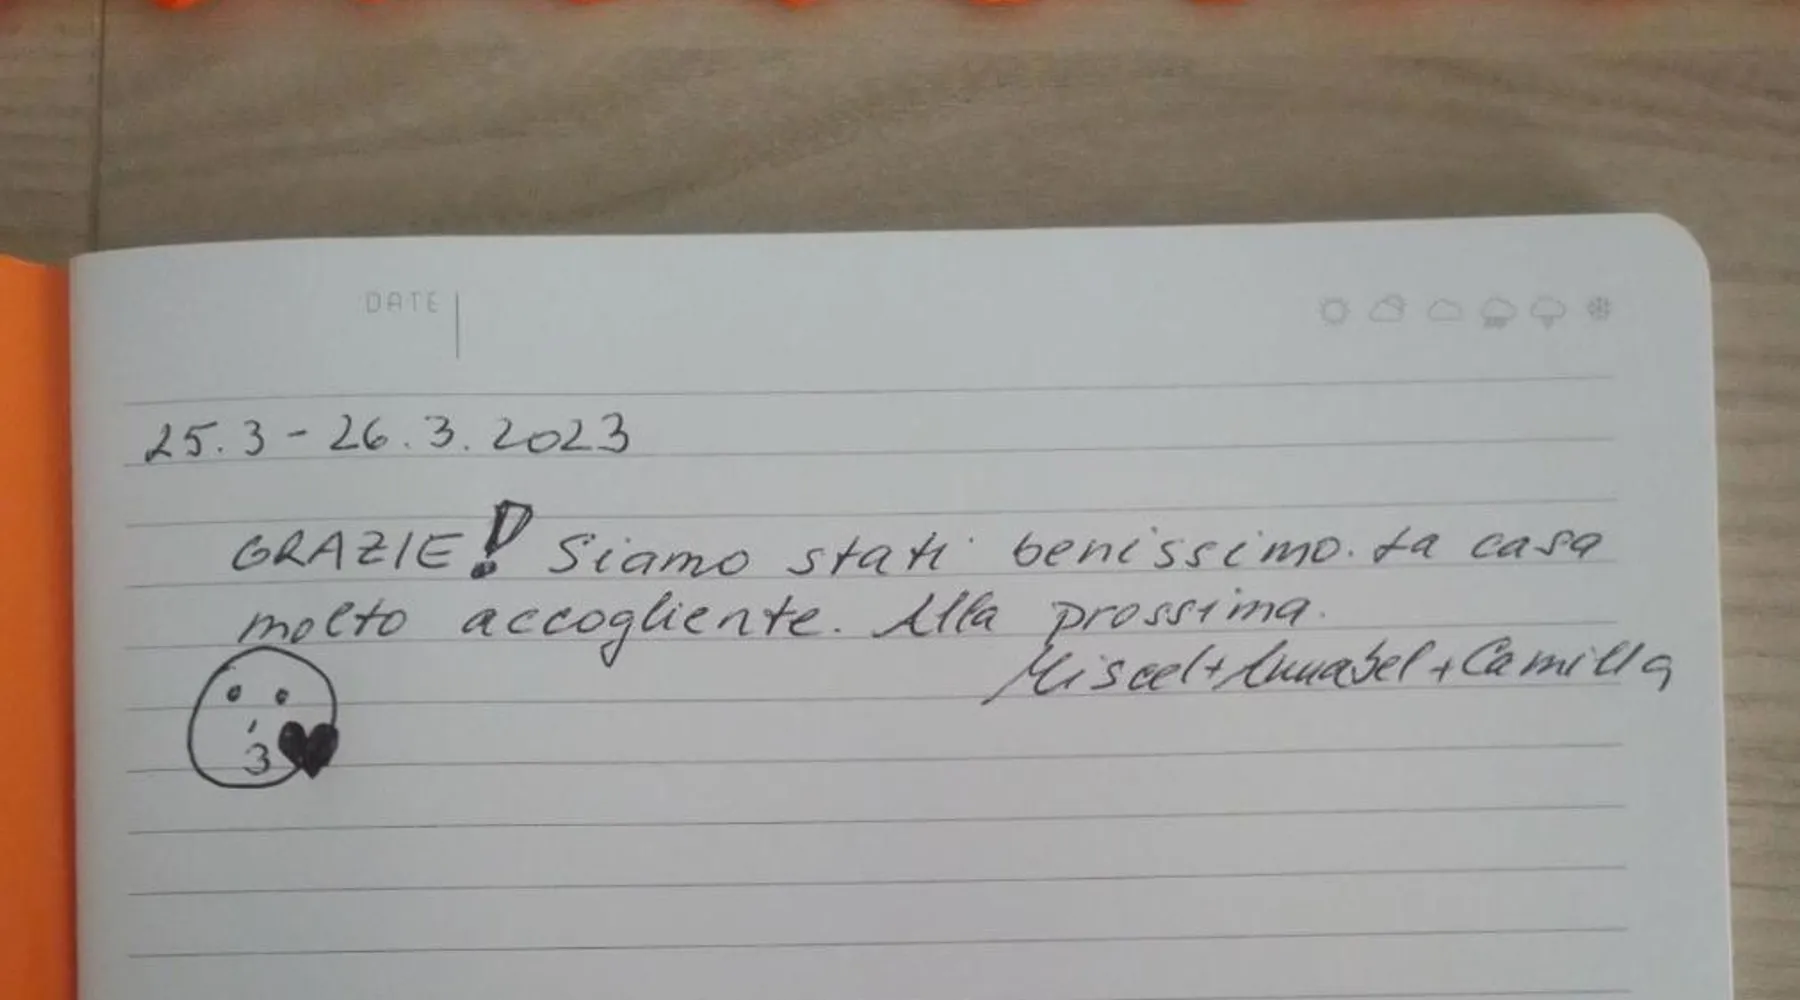 DATE
25.3-26.3.2023
GRAZIE! Siamo stati benissimo. La casa
molto accogliente. Alla prossima.
Miscel+Annabel+Camilla